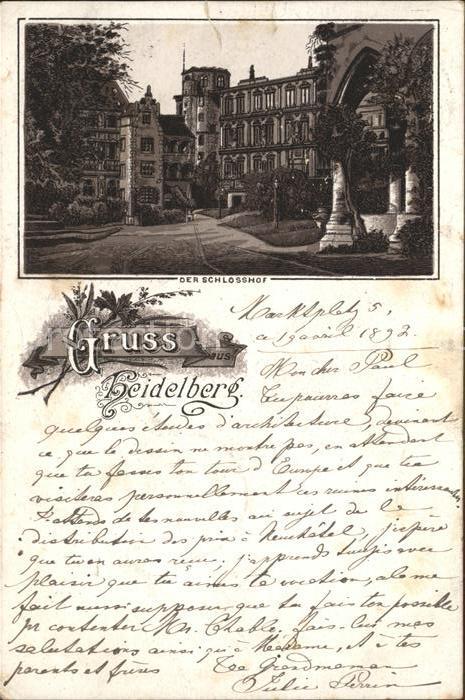 DER SCHLOSSHOF
Gruss aus
Heidelberg.
Marktplatz 5,
19 avril 1892
Mon cher Paul
Tu pourras faire
quelques études d'architecture, devinant
ce que le dessin ne montre pas, en attendant
que tu fasses ton tour d'Europe et que tu
visiteras personnellement ces ruines intéressantes
J'attends de tes nouvelles au sujet de la
distribution des prix à Neuchâtel, j'espère
que tu en auras reçu. j'apprends toujours avec
plaisir que tu aimes ta vocation, cela me
fait aussi supposer que tu fais ton possible
pr contenter Mr. Chable. fais-lui mes
salutations ainsi qu'à Madame, et à tes
parents et frères Ta Grandmaman
Julie Perrin